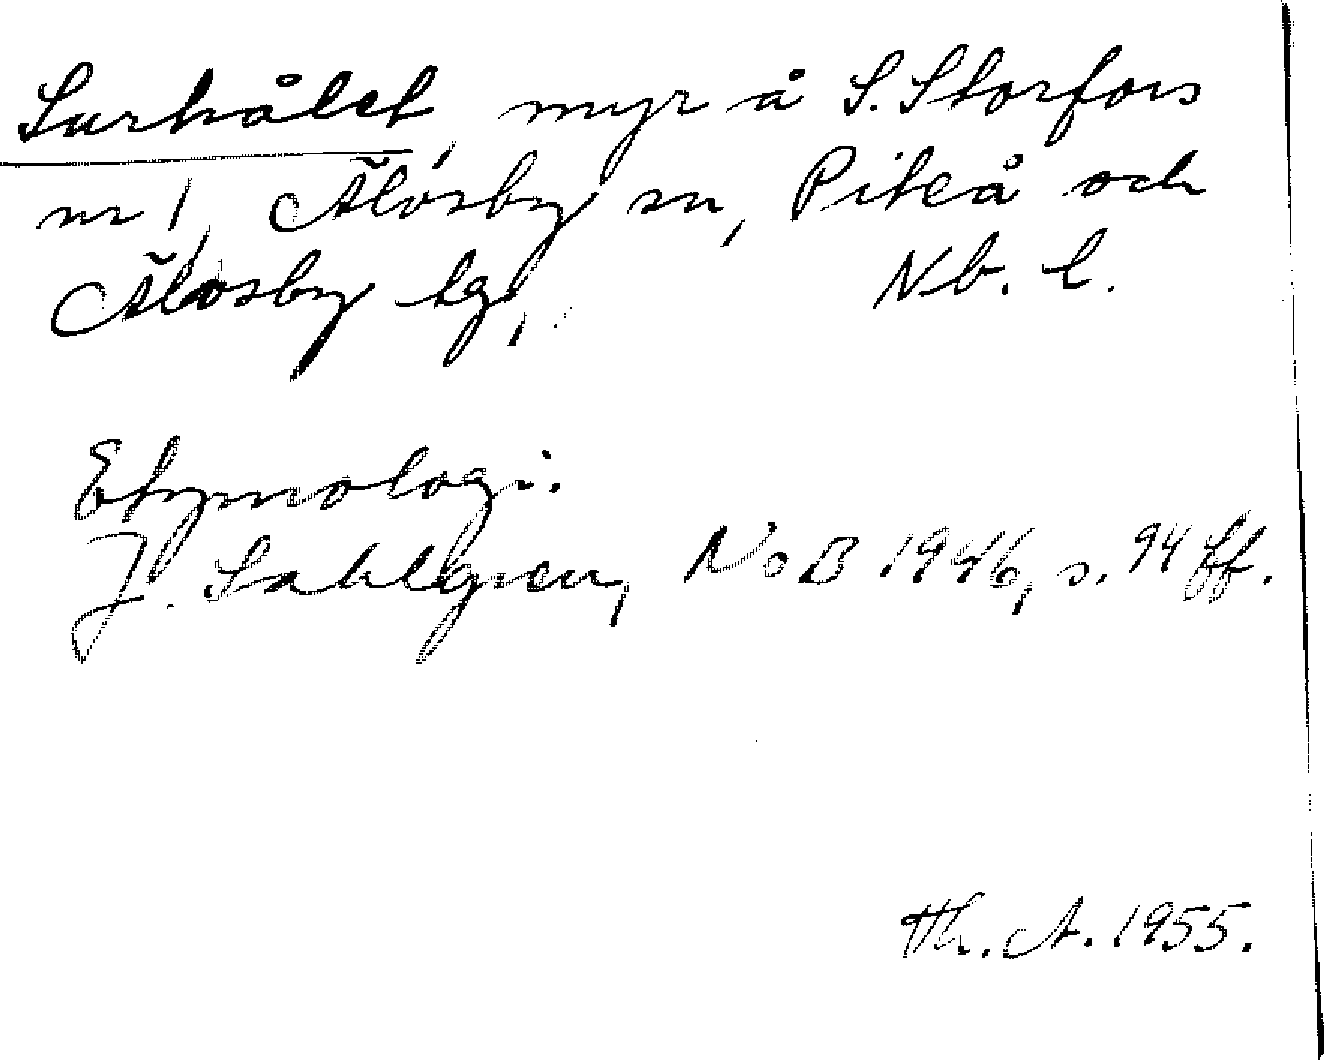 Surhålet, myr å S. Storfors
nr 1, Älvsby sn, Piteå och
Älvsby tg, Nb. l.
Etymologi:
J. Sahlgren, NoB 1946, s. 94 ff.
Th. A. 1955.